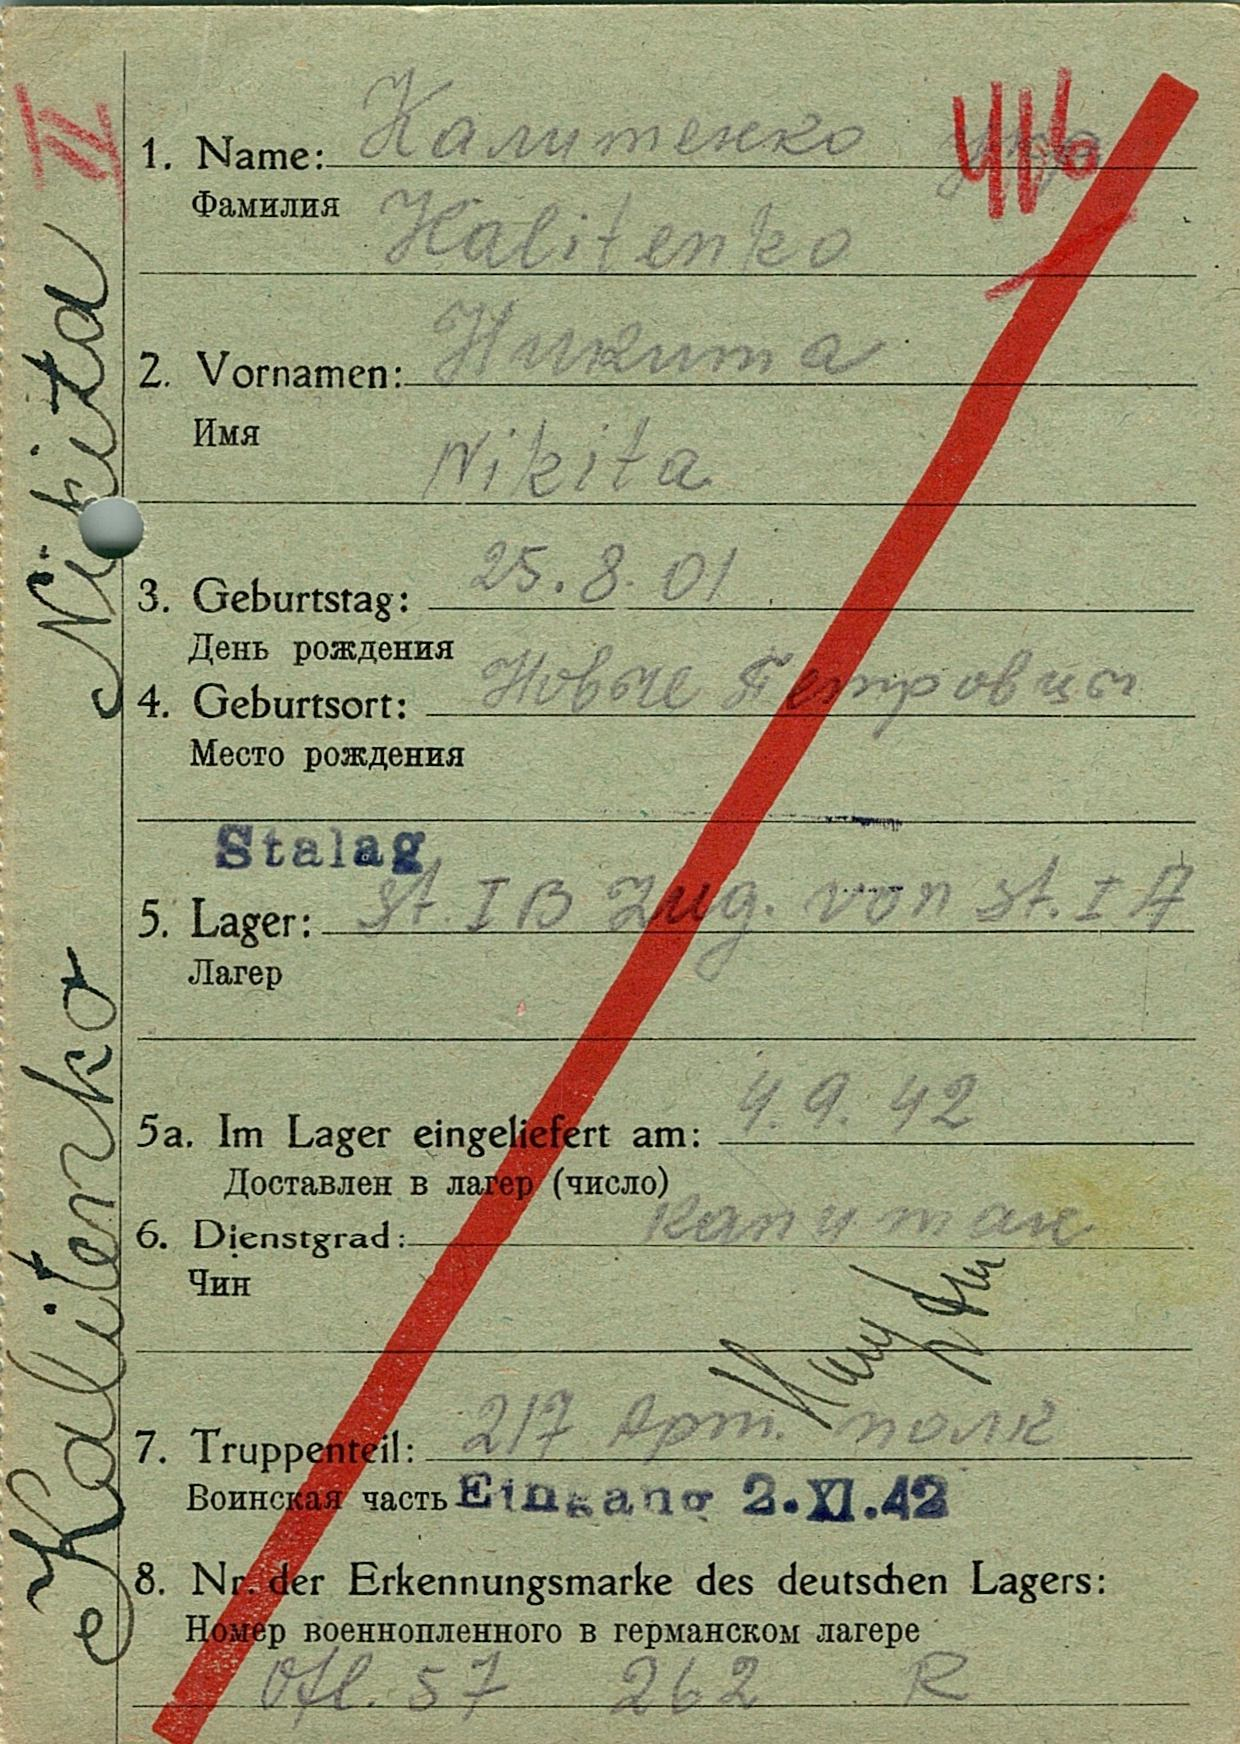 IV
Kalitenko Nikita
1. Name: Калитенко укр
416
Фамилия Kalitenko
2. Vornamen: Никита
Имя Nikita
3. Geburtstag: 25.8.01
День рождения
4. Geburtsort: Новые Петровцы
Место рождения
Stalag
5. Lager: St. I B Zug. von St. I A
Лагер
5a. Im Lager eingeliefert am: 4.9.42
Доставлен в лагер (число)
6. Dienstgrad: капитан
Чин
7. Truppenteil: 217 Арт. полк
Воинская часть Eingang 2.XI.42
8. Nr. der Erkennungsmarke des deutschen Lagers:
Номер военнопленного в германском лагере
Ofl. 57 262 R